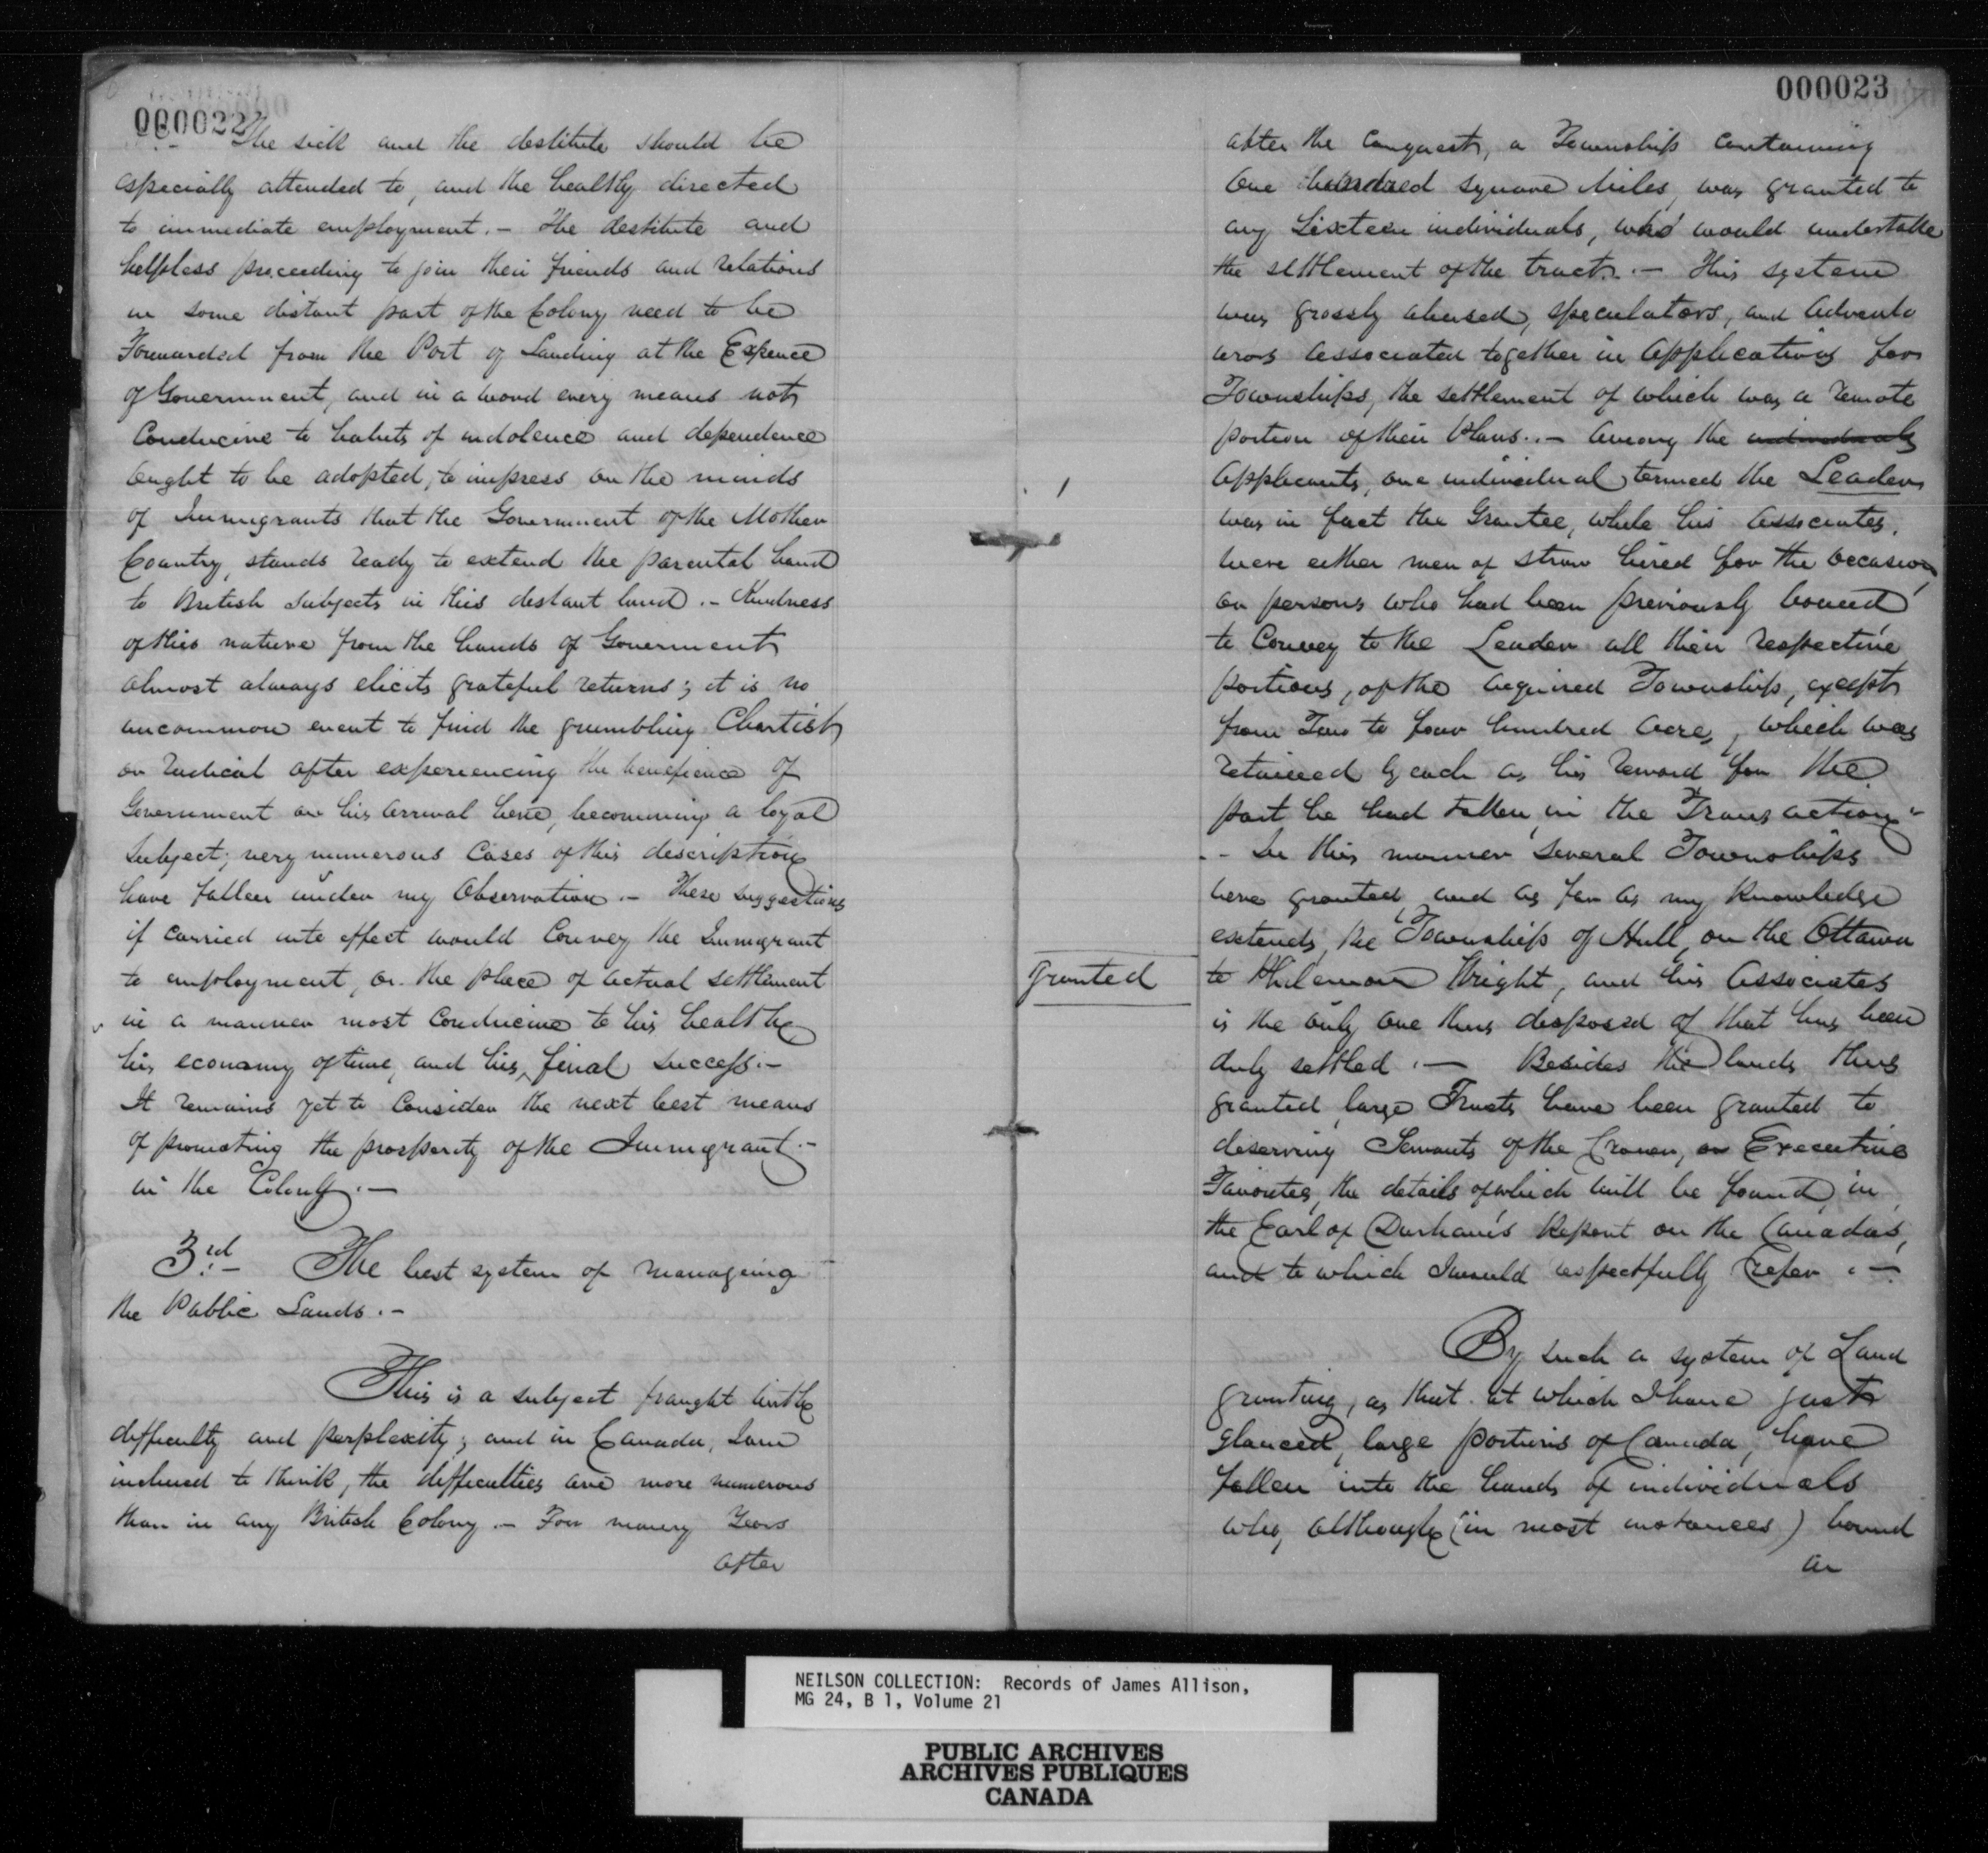 000022
The sick and the destitute should be
especially attended to, and the healthy directed
to immediate employment. - The destitute and
helpless proceeding to join their friends and relations
in some distant part of the Colony need to be
Forwarded from the Port of Landing at the Expence
of Government, and in a word every means not
Conducive to habits of indolence and dependence
ought to be adopted, to impress on the minds
of Immigrants that the Government of the Mother
Country, stands ready to extend the parental hand
to British Subjects in this distant land. - Kindness
of this nature from the hands of Government
almost always elicits grateful returns; it is no
uncommon event to find the grumbling Chartist
or Radical after experiencing the benefience of
Government on his arrival here, becomming a loyal
Subject; very numerous Cases of this description
have fallen under my Observation. - These suggestions
if Carried into effect would Convey the Immigrant
to employment, or the place of actual settlement
in a manner most Conducive to his health,
his economy of time, and his final success. -
It remains yet to Consider the next best means
of promoting the prosperity of the Immigrant -
in the Colony. -
3rd - The best system of managing
the Public Lands. -
This is a subject fraught with
difficulty and perplexity; and in Canada, I am
inclined to think, the difficulties are more numerous
than in any British Colony. - For many Years
after
000023
after the Conquest, a Township Containing
One hundred square Miles, was granted to
any Sixteen individuals, who would undertake
the settlement of the tract. - This system
was grossly abused, speculators, and adventu
urers associated together in applications for
Townships, the settlement of which was a remote
portion of their Plans. - Among the individuals
applicants, one individual termed the Leader,
was in fact the Grantee, while his associates,
were either men of straw hired for the occasion,
or persons who had been previously bound
to Convey to the Leader all their respective
portions, of the acquired Township, except
from Two to four hundred acres, which was
retained by each as his reward for the
part he had taken in the Transaction -
- In this manner several Townships
were granted, and as far as my knowledge
extends, the Township of Hull, on the Ottawa
granted
to Philemon Wright, and his associates
is the only one thus disposed of that has been
duly settled. - Besides the lands thus
granted, large Tracts have been granted to
deserving Servants of the Crown, or Executive
Favorites, the details of which will be found, in
the Earl of Durham's Report on the Canadas,
and to which I would respectfully refer. -
By such a system of Land
granting, as that at which I have just
glanced, large portions of Canada, have
fallen into the hands of individuals
who, although (in most instances) bound
an
NEILSON COLLECTION: Records of James Allison,
MG 24, B 1, Volume 21
PUBLIC ARCHIVES
ARCHIVES PUBLIQUES
CANADA